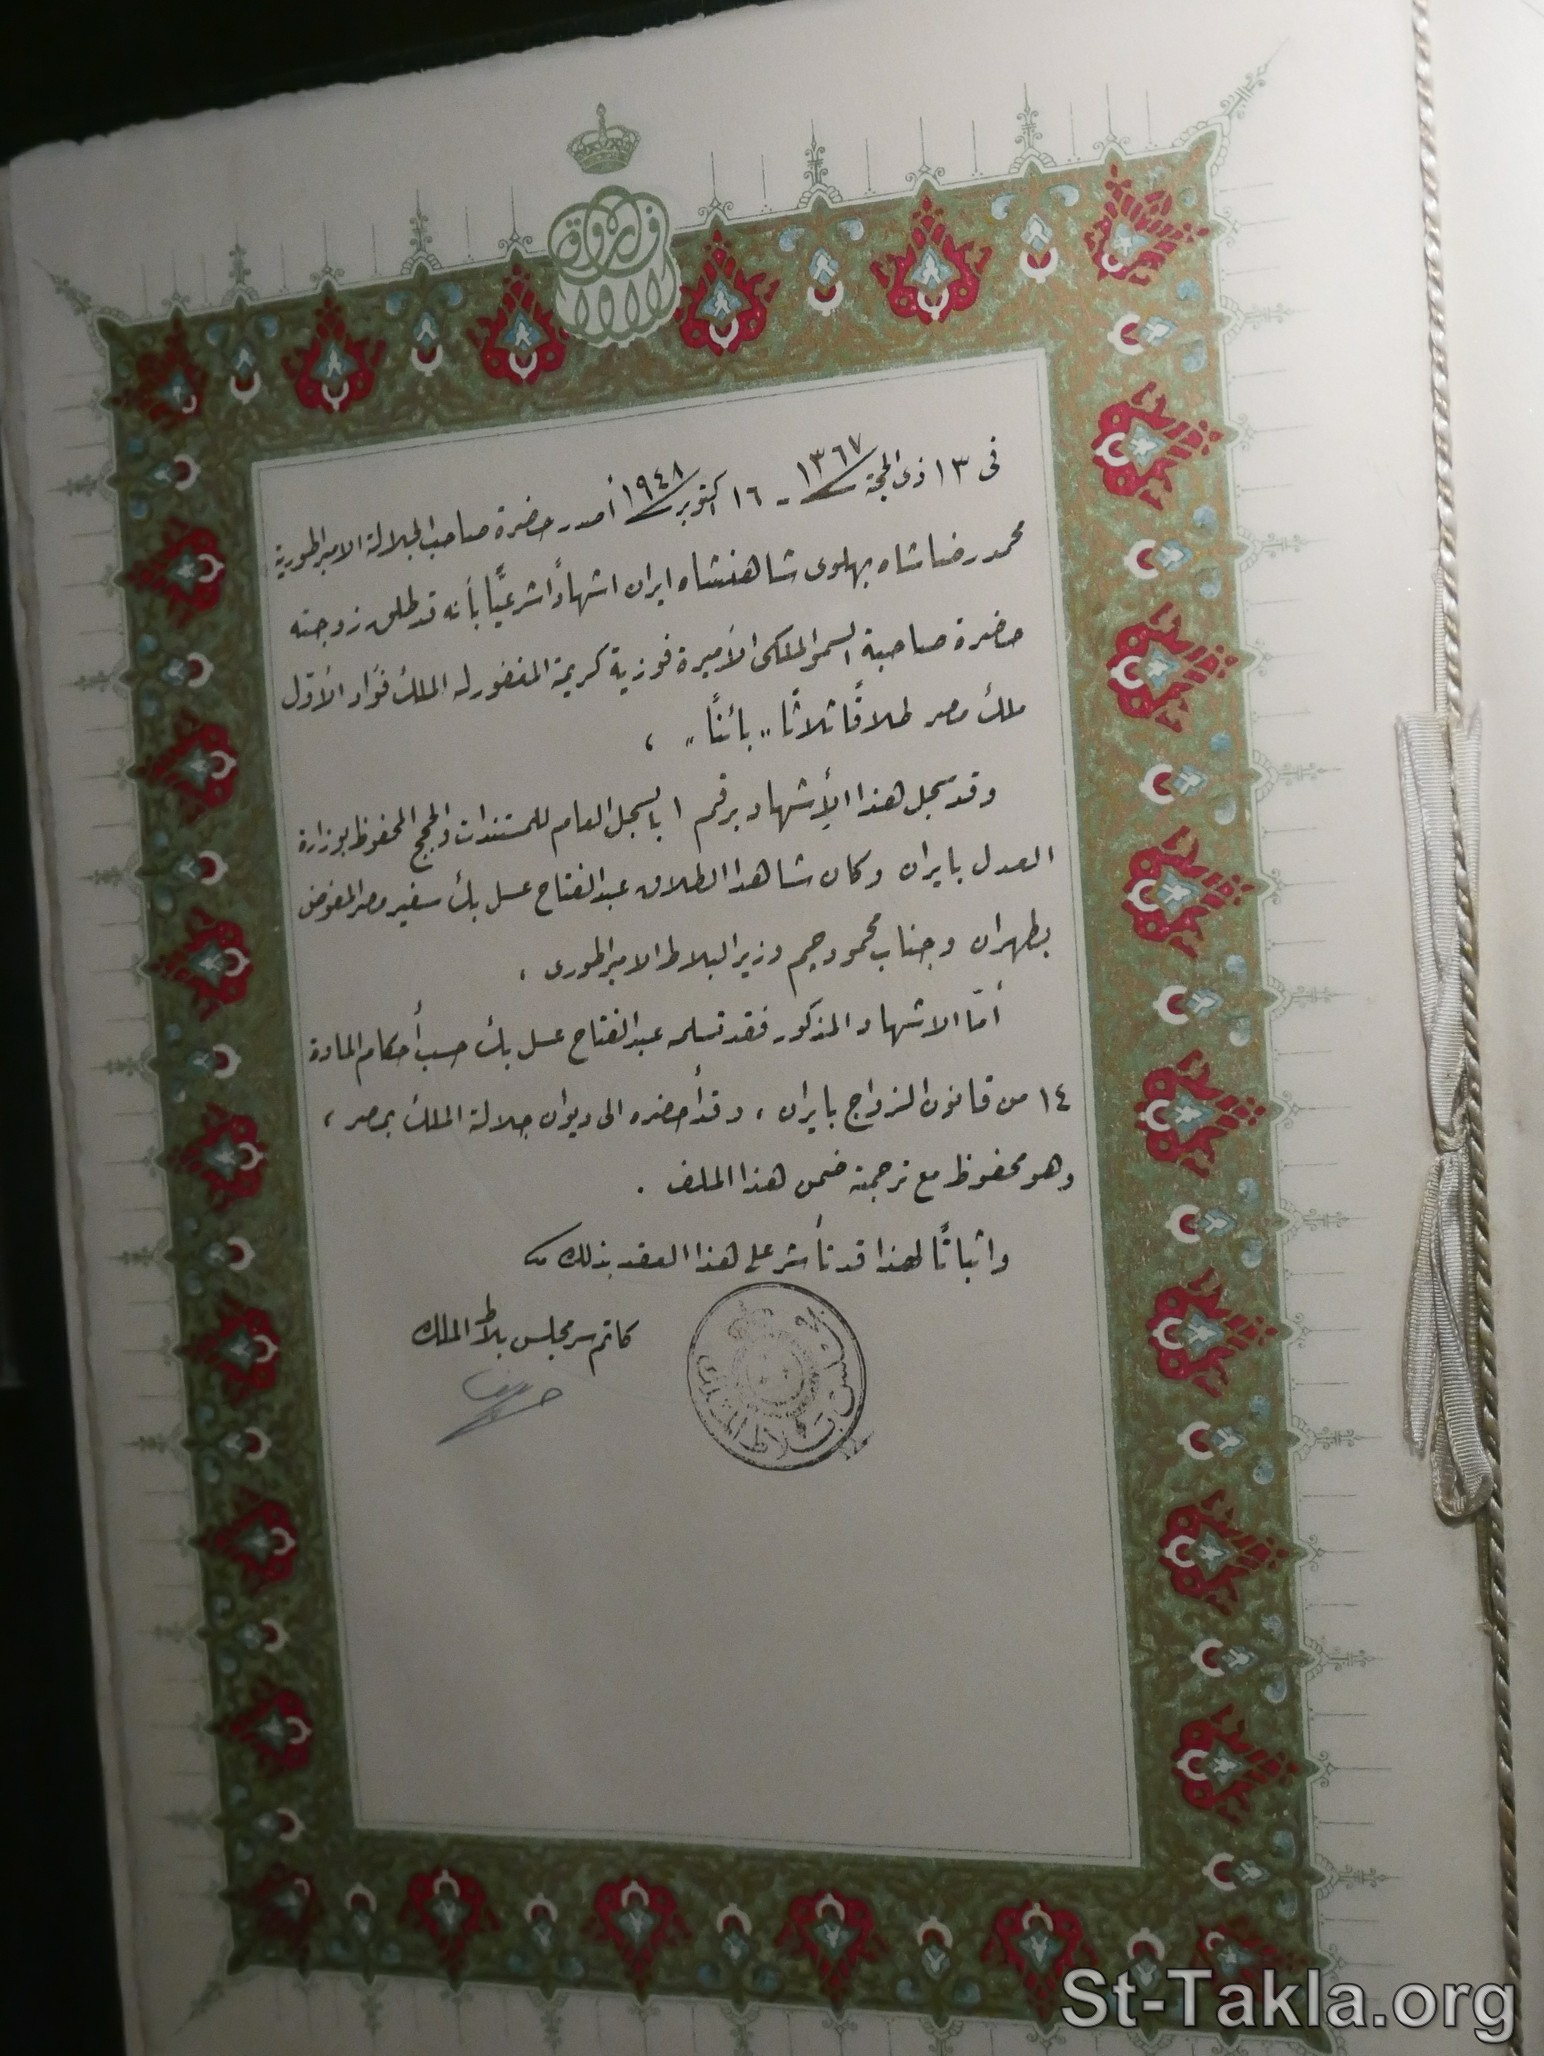 فاروق الأول
فى ١٣ ذى الحجة ١٣٦٧ - ١٦ اكتوبر ١٩٤٨ أصدر حضرة صاحب الجلالة الامبراطورية
محمد رضا شاه بهلوى شاهنشاه ايران اشهاداً شرعيًا بأنه قد طلق زوجته
حضرة صاحبة السمو الملكى الأميرة فوزية كريمة المغفور له الملك فؤاد الأول
ملك مصر طلاقًا ثلاثًا "بائنًا" ،
وقد سجل هذا الإشهاد برقم ١ بالسجل العام للمستندات والحجج المحفوظ بوزارة
العدل بايران وكان شاهدا الطلاق عبد الفتاح عسل بك سفير مصر المفوض
بطهران وجناب محمود جم وزير البلاط الامبراطورى ،
أمّا الاشهاد المذكور فقد تسلمه عبد الفتاح عسل بك حسب أحكام المادة
١٤ من قانون الزواج بايران ، وقد أحضره الى ديوان جلالة الملك بمصر ،
وهو محفوظ مع ترجمته ضمن هذا الملف .
واثباتًا لهذا قد تأشر على هذا العقد بذلك
كاتم سر مجلس بلاط الملك
مجلس بلاط الملك
St-Takla.org